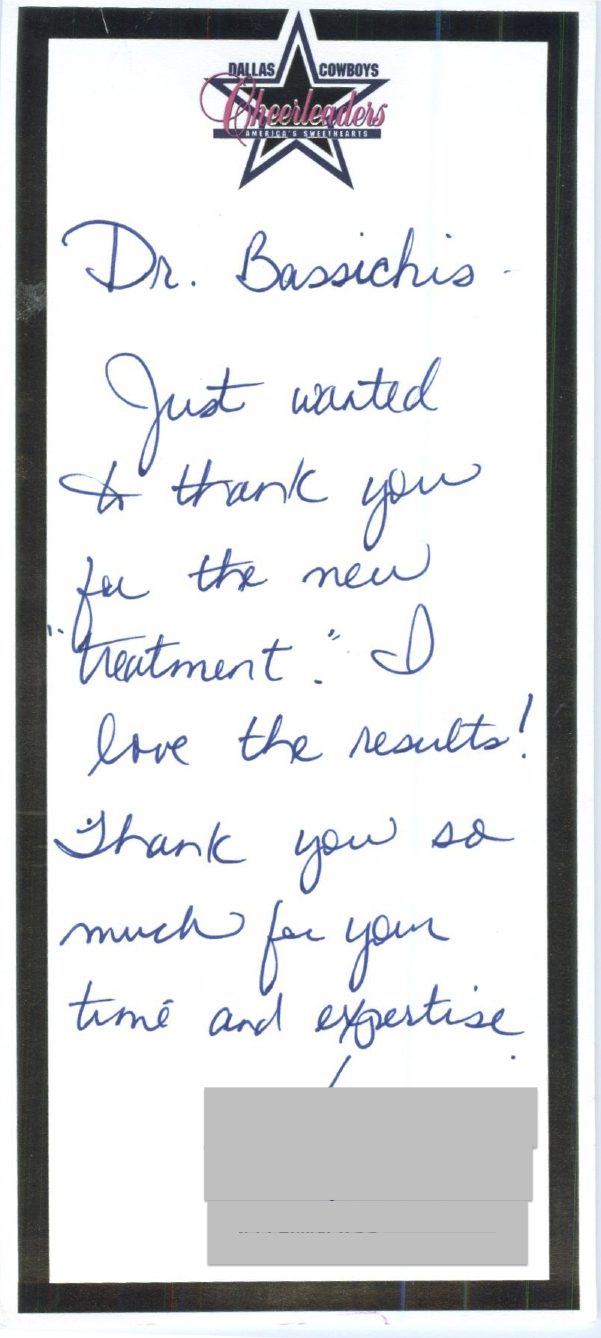 DALLAS COWBOYS
Cheerleaders
AMERICA'S SWEETHEARTS
Dr. Bassichis -
Just wanted
to thank you
for the new
"treatment." I
love the results!
Thank you so
much for your
time and expertise.